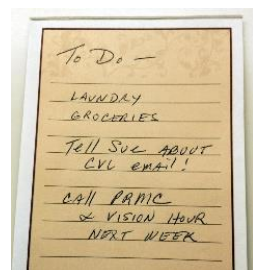 To Do —
LAUNDRY
GROCERIES
Tell Sue ABOUT
CVC email!
CAll PRMC
& VISION HOUR
NEXT WEEK